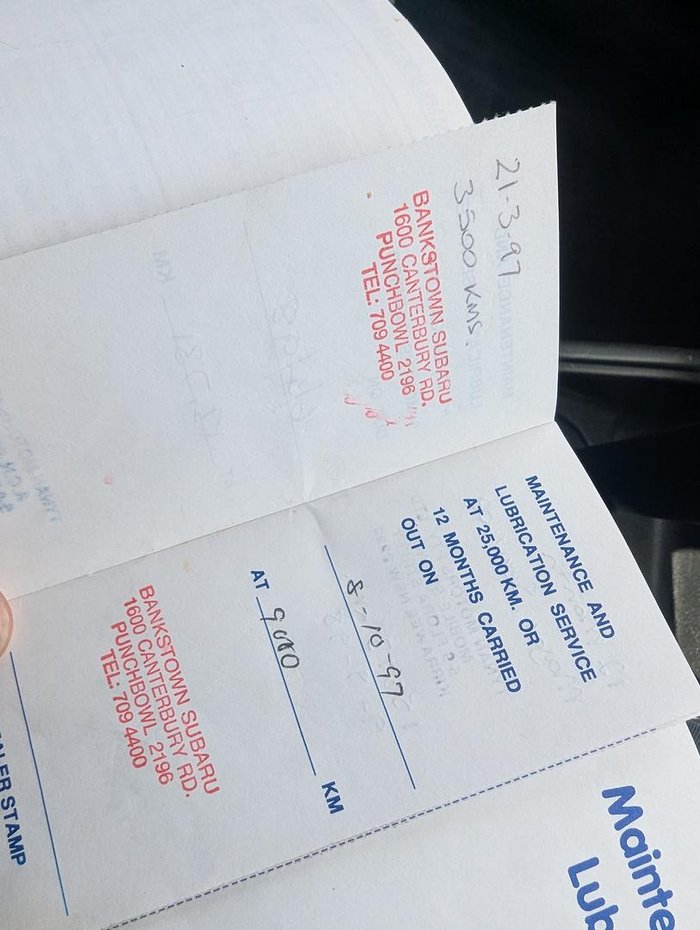 21-3-97
3500 KMS.
BANKSTOWN SUBARU
1600 CANTERBURY RD.
PUNCHBOWL 2196
TEL: 709 4400
MAINTENANCE AND
LUBRICATION SERVICE
AT 25,000 KM. OR
12 MONTHS CARRIED
OUT ON
8-10-97
AT 9000 KM
BANKSTOWN SUBARU
1600 CANTERBURY RD.
PUNCHBOWL 2196
TEL: 709 4400
ALER STAMP
Mainte
Lub